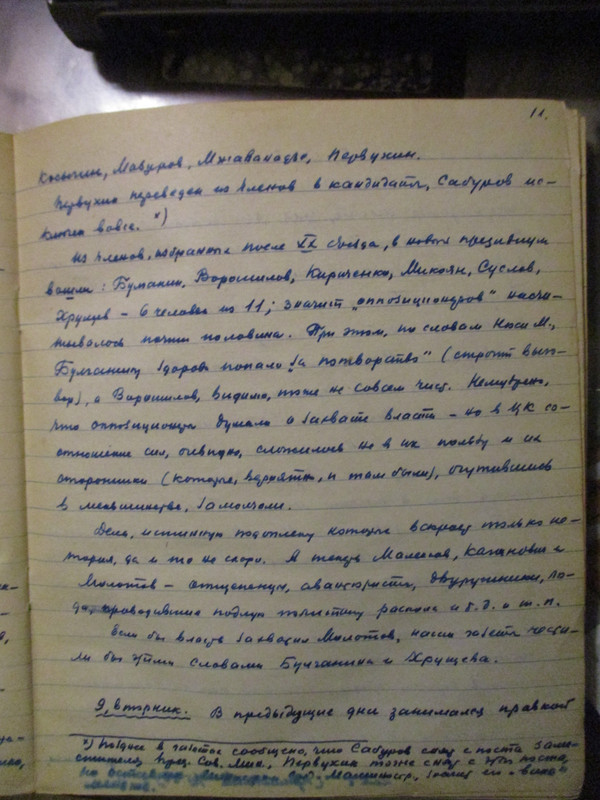 11.
Косыгин, Мазуров, Мжаванадзе, Первухин.
Первухин переведен из членов в кандидаты, Сабуров ис-
ключен вовсе. *)
Из членов, избранных после XX съезда, в новый президиум
вошли: Булганин, Ворошилов, Кириченко, Микоян, Суслов,
Хрущев – 6 человек из 11; значит "оппозиционеров" насчи-
тывалось почти половина. При этом, по словам Нюси М.,
Булганину здорово попало "за потворство" (строгий выго-
вор), а Ворошилов, видимо, тоже не совсем чист. Немудрено,
что оппозиционеры думали о захвате власти – но в ЦК со-
отношение сил, очевидно, сложилось не в их пользу и их
сторонники (которые, вероятно, и там были), очутившись
в меньшинстве, замолчали.
Дела, истинную подоплеку которых вскроет только ис-
тория, да и то не скоро. А теперь Маленков, Каганович и
Молотов – отщепенцы, авантюристы, двурушники,
проводившие подлую политику раскола и т. д. и т. п.
Если бы власть захватил Молотов, наши газеты чести-
ли бы этими словами Булганина и Хрущева.
9, вторник. В предыдущие дни занимался правкой
*) Позднее в газетах сообщено, что Сабуров снят с поста заме-
стителя Пред. Сов. Мин., Первухин тоже снят с этого поста,
но оставлен Министром Сред. Машиностр., значит его "вина"